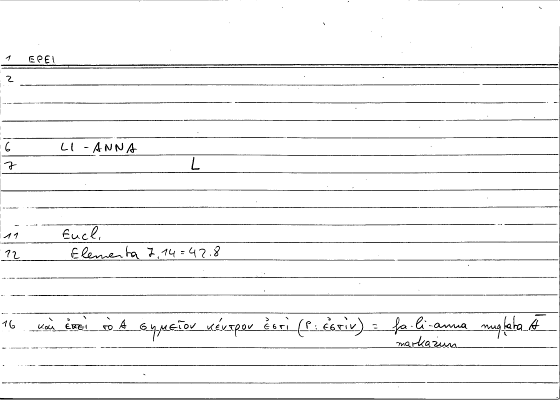 1 EPEI
2
6 LI-ANNA
7 L
11 Eucl.
12 Elementa 7.14 = 42.8
16 καὶ ἐπεὶ τὸ A σημεῖον κέντρον ἐστὶ (P: ἐστὶν) = fa-li-anna nuqṭata Ā
markazun